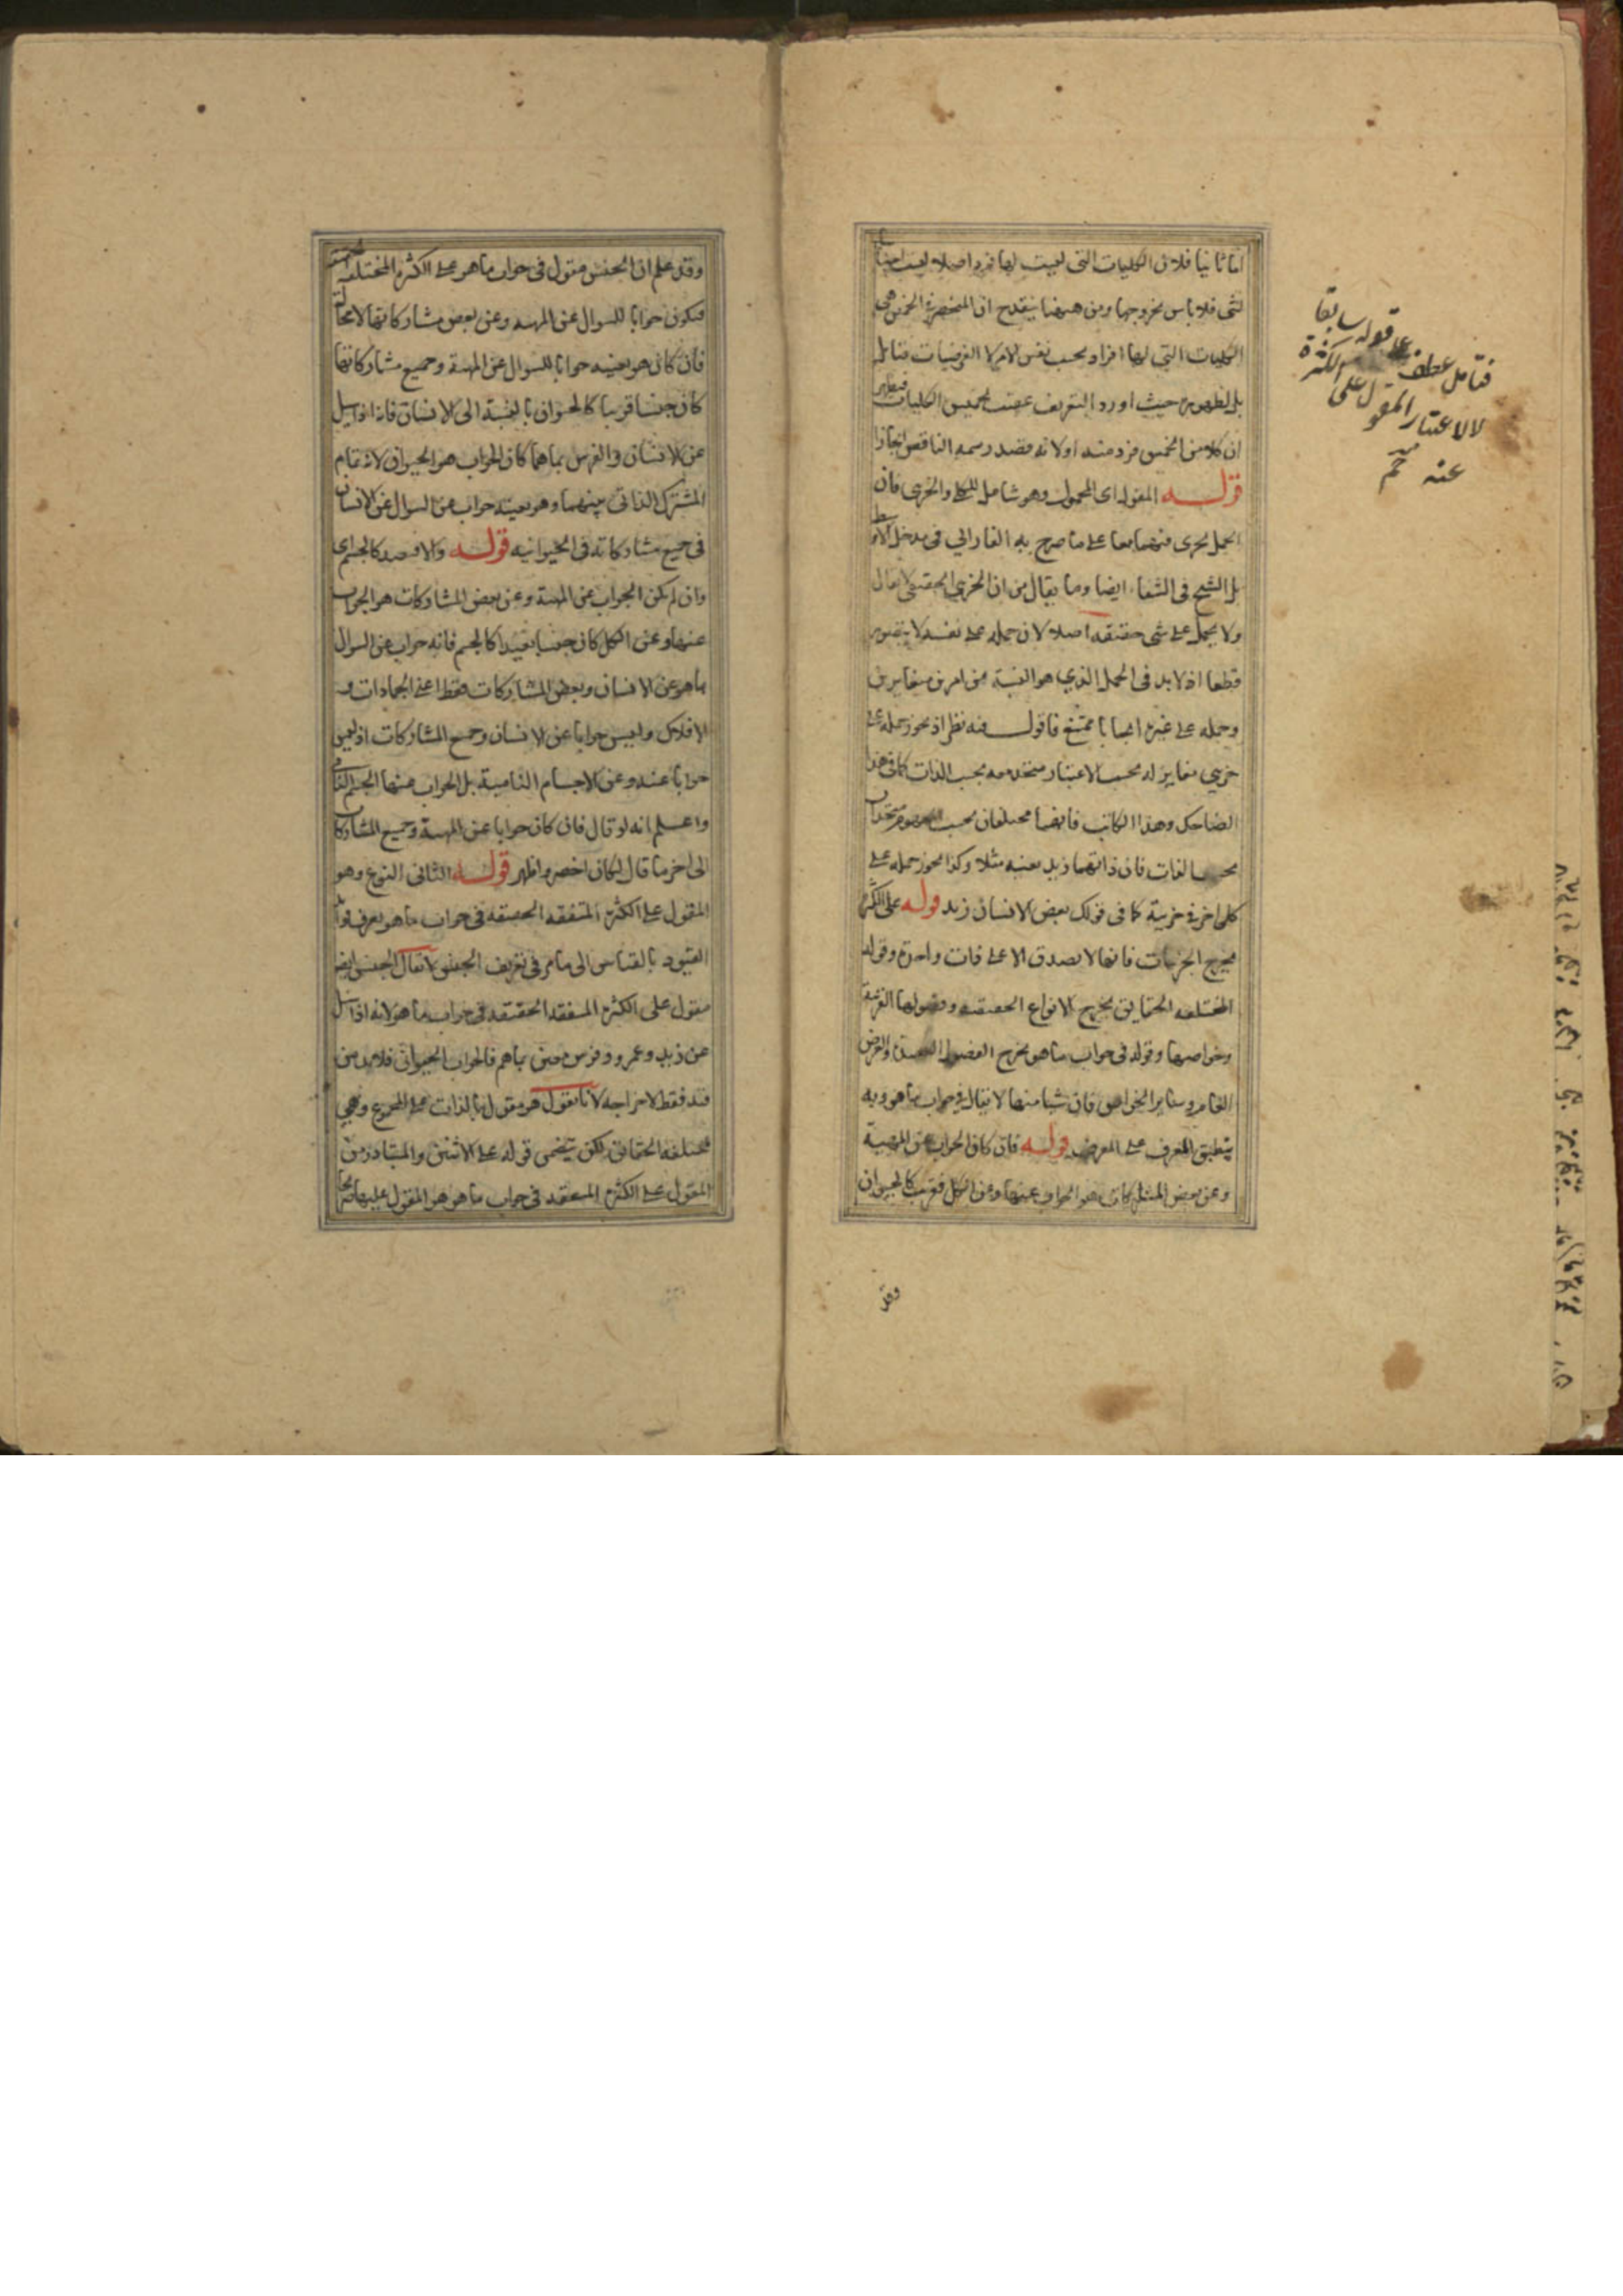 اما ثانيا فلان الكليات التى ليست لها فرد اصلا ليست اجناسا
لشى فلا باس بخروجها ومن ههنا ينقدح ان المنحصر فى الخمس هى
الكليات التى لها افراد بحسب نفس الامر لا الفرضيات فتامل
بل لظهوره حيث اورد التعريف عقيب تخميس الكليات فيظهر
ان كلا من الخمس فرد منه او لانه قصد رسمه الناقص ايجازا
قوله المقول اى المحمول وهو شامل للكلى والجزى فان
الحمل يجرى فيهما معا على ما صرح به الفارابي فى مدخل الاوسط
بل الشيخ فى الشفاء ايضا وما يقال من ان الجزي الحقيقى لا يقال
ولا يحمل على شى حقيقة اصلا لان حمله على نفسه لا يتصور
قطعا اذ لا بد فى الحمل الذي هو النسبة من امرين متغايرين
وحمله على غيره ايجابا ممتنع فاقول فيه نظر اذ يجوز حمله على
جزيي مغاير له بحسب الاعتبار متحد معه بحسب الذات كما فى هذا
الضاحك وهذا الكاتب فانهما مختلفان بحسب المفهوم متحدان
بحسب الذات فان ذاتهما زيد بعينه مثلا وكذا يجوز حمله على
كلى اخر فى جزيية كما فى قولك بعض الانسان زيد قوله على الكثرة
يخرج الجزييات فانها لا يصدق الا على ذات واحدة وقوله
المختلفه الحقايق يخرج الانواع الحقيقيه وفصولها القريبة
وخواصها وقوله فى جواب ما هو يخرج الفصول البعيدة والعرض
العام وساير الخواص فان شيا منها لا يقال فى جواب ما هو وبه
ينطبق المعرف على المعرف قوله فان كان الجواب عن المهية
وعن بعض المشاركات هو الجواب عنها وعن الكل فقريب كالحيوان
وقد
فتامل عطف على قوله سابقا
لا لاعتبار المقول على الكثرة
منه
وقد علم ان الجنس مقول فى جواب ما هو على الكثرة المختلفه الحقيقه
فيكون جوابا للسوال عن المهيه وعن بعض مشاركاتها لا محالة
فان كان هو بعينه جوابا للسوال عن المهية وجميع مشاركاتها
كان جنسا قريبا كالحيوان بالنسبة الى الانسان فانه اذا سيل
عن الانسان والفرس بما هما كان الجواب هو الحيوان لانه تمام
المشترك الذاتى بينهما وهو بعينه جواب عن السوال عن الانسان
فى جميع مشاركاته فى الحيوانيه قوله والا فبعيد كالجسم اى
وان لم يكن الجواب عن المهية وعن بعض المشاركات هو الجواب
عنها وعن الكل كان جنسا بعيدا كالجسم فانه جواب عن السوال
بما هو عن الانسان وبعض المشاركات فقط اعنى الجمادات و
الافلاك وليس جوابا عن الانسان وجميع المشاركات اذ ليس
جوابا عنه وعن الاجسام النامية بل الجواب عنها الجسم النامى
واعلم انه لو قال فان كان جوابا عن المهية وجميع المشاركات
الى اخر ما قال لكان اخصر واظهر قوله الثانى النوع وهو
المقول على الكثرة المتفقه الحقيقه فى جواب ما هو يعرف فوايد
القيود بالقياس الى ما مر فى تعريف الجنس لا يقال الجنس ايضا
مقول على الكثرة المتفقه الحقيقه فى جواب ما هو لانه اذا سيل
عن زيد وعمرو وفرس معين بما هم فالجواب الحيوان فلا بد من
قيد فقط لاخراجه لانا نقول هو مقول بالذات على المجموع وهي
مختلفة الحقايق لكن يتضمن قوله على الاثنين والمتبادر من
المقول على الكثرة المتفقه فى جواب ما هو هو المقول عليها